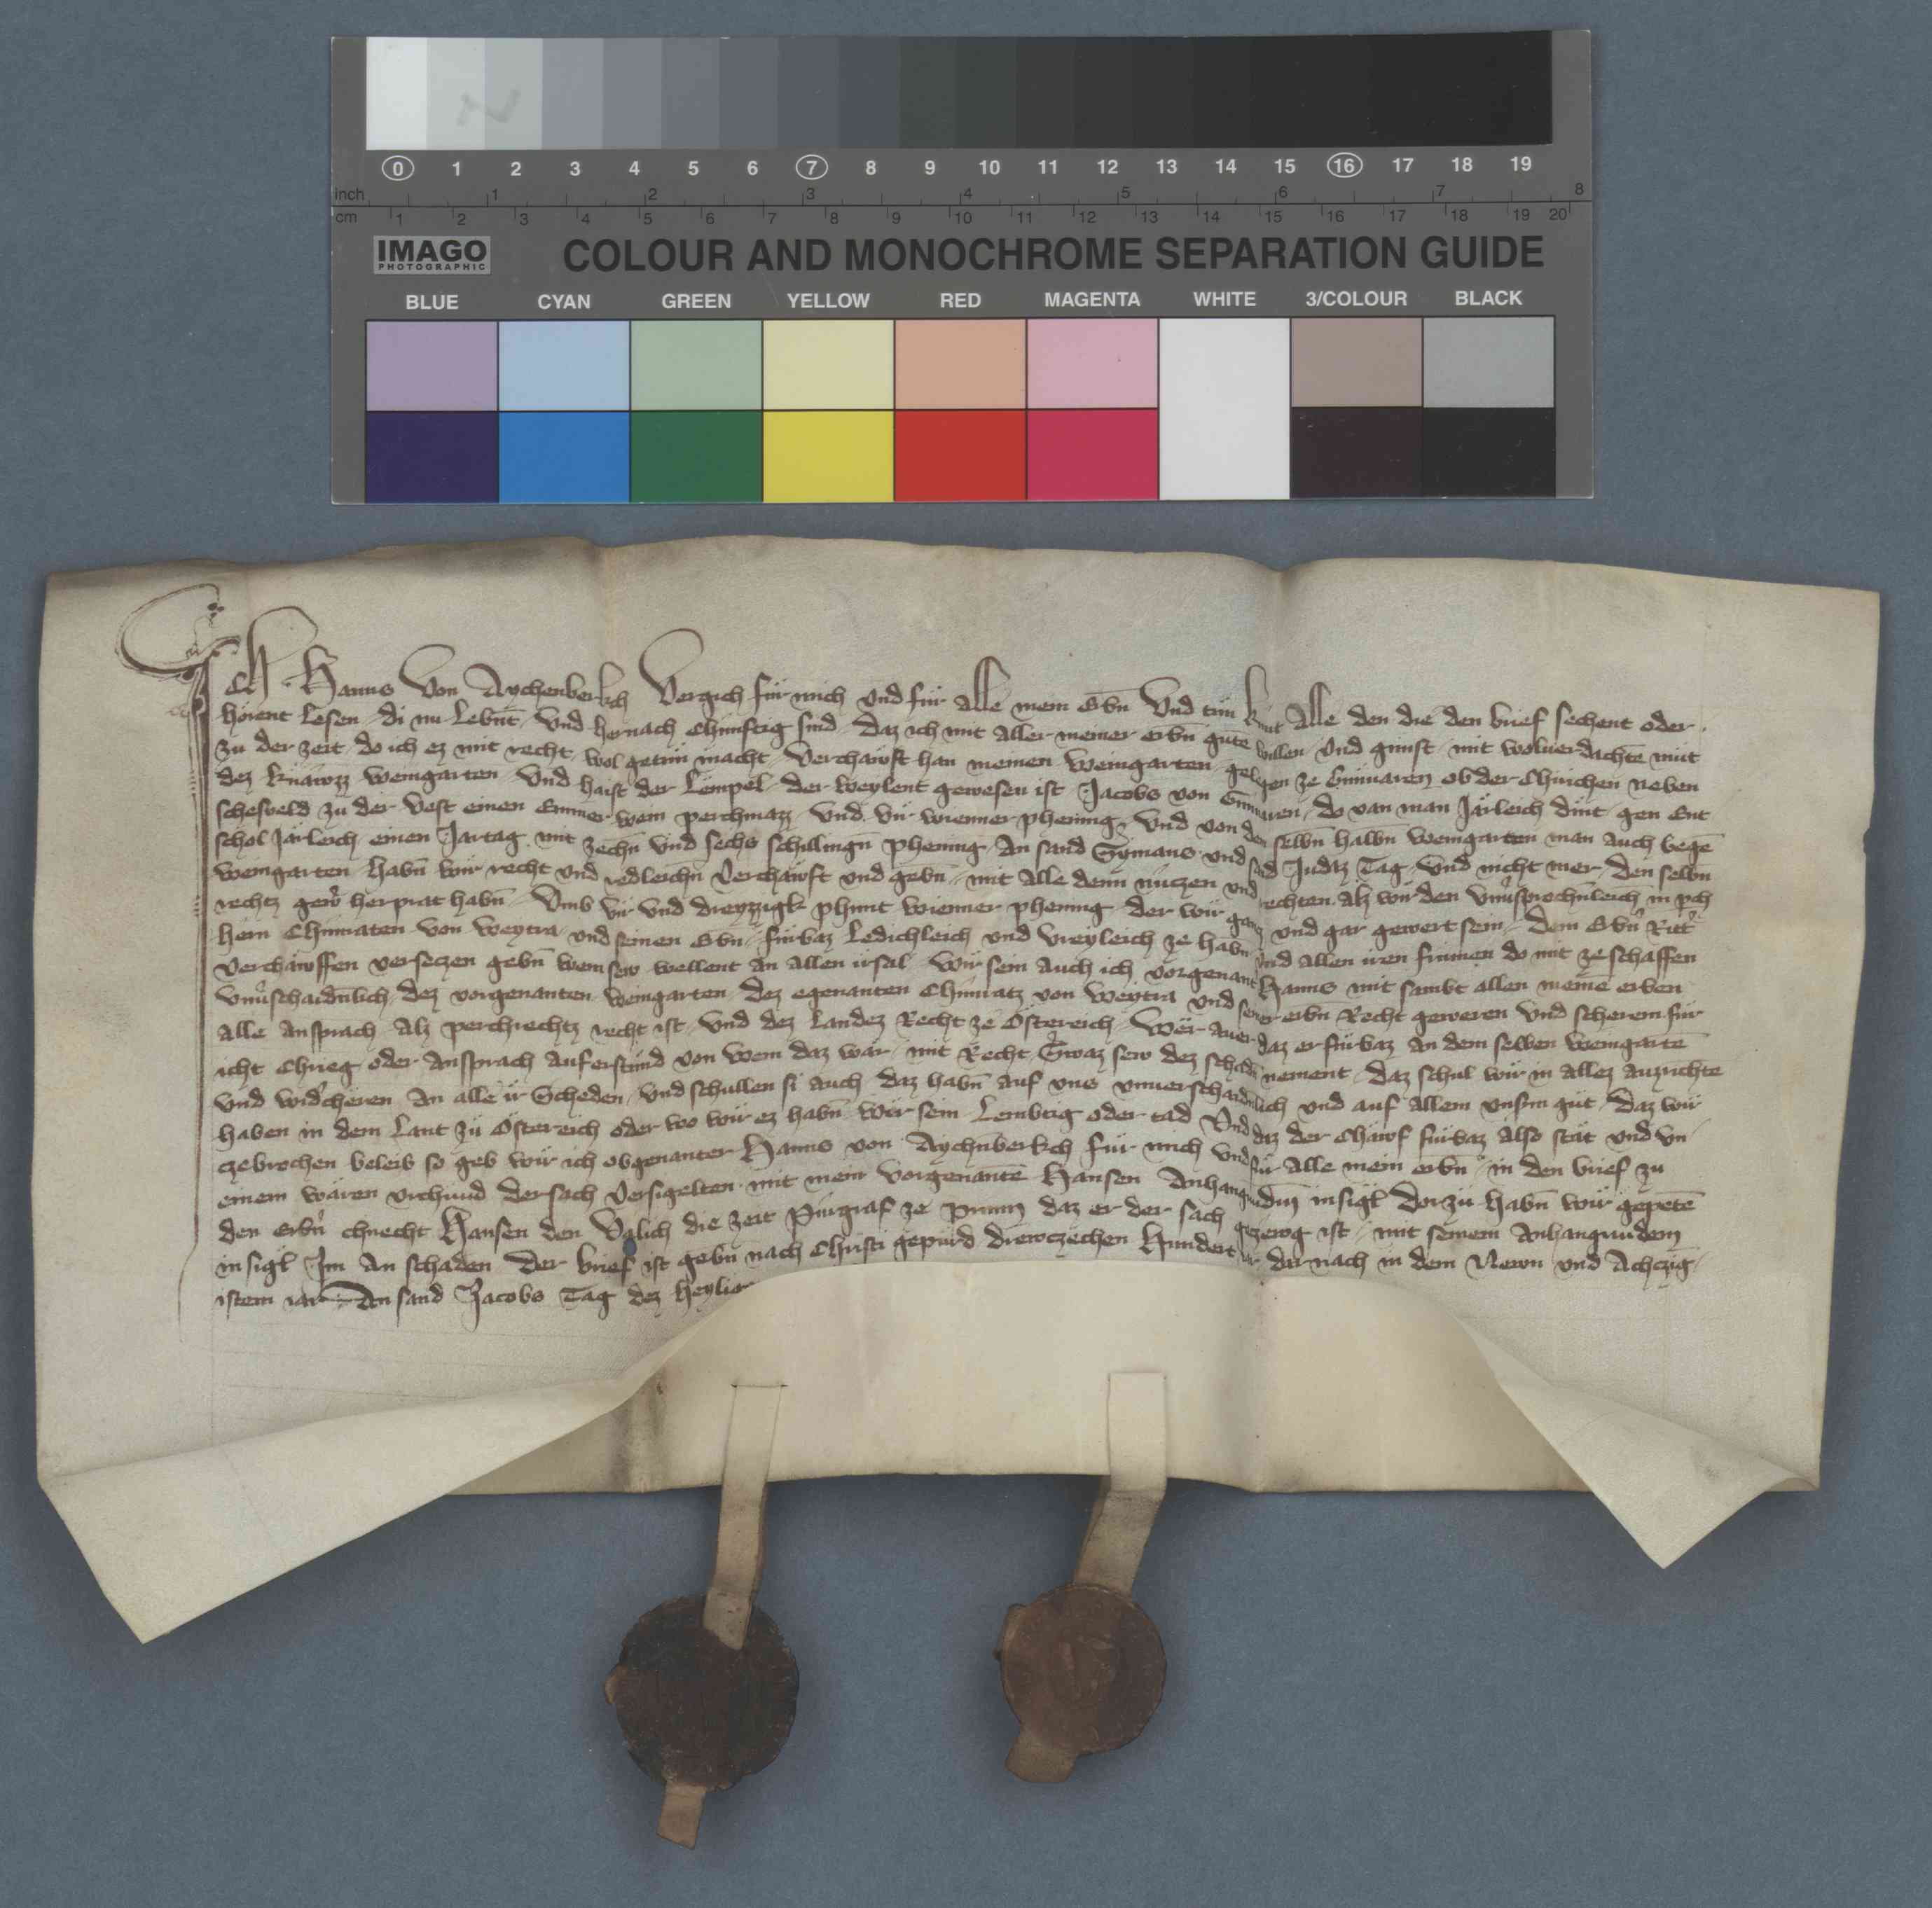 0 1 2 3 4 5 6 7 8 9 10 11 12 13 14 15 16 17 18 19
inch 1 2 3 4 5 6 7 8
cm 1 2 3 4 5 6 7 8 9 10 11 12 13 14 15 16 17 18 19 20
IMAGO COLOUR AND MONOCHROME SEPARATION GUIDE
PHOTOGRAPHIC
BLUE CYAN GREEN YELLOW RED MAGENTA WHITE 3/COLOUR BLACK
Ich Hanns Von Aychenberkch Vergich für mich und für Alle mein Erbn̄ Und tün kunt Alle den die den brief sechent oder
hörent Lesen di nu Lebn̄t Und hernach Chünftig sind daz ich mit Aller meiner erbn̄ gūte willen Und gunst mit woluerdachtē müt
zu der zeit do ich ez mit recht wol getün macht Verchawft han meinen Weingarten gelegen ze ob der Chirichen neben
dez weingarten Und haist der Lempel der weylent gewesen ist Jacobs von do van man Järleich dint gen
zu der Vest einen Emmer wein perchmazz Und wienner phening Und von dem selbn̄ halbn̄ Weingarten man auch begē
schol Järleich einen Jartag mit zechn̄ Und sechs schillingn̄ phening An sand Symans und sand Judaz Tag Und nicht mer den selbn̄
weingarten habn̄ wir recht und redleichn̄ Verchawft und gebn̄ mit Alle denn nüczen und rechten Alz wir den in
rechtz herpracht habn̄ Umb vir Und dreyzzigk phunt wienner phening der wir gancz und gar gewert sein dem Erbn̄
hern Chunraten Von Weytra und seinen Erbn̄ fürbaz Ledichleich und Vreyleich ze habn̄ Und allen iren frumen do mit ze schaffen
Verchawffen verseczen gebn̄ wem sew wellent an allen irsal Wir sein Auch ich vorgenant Hanns mit sambt allen meinē erben
dez vorgenanten weingarten dez egenanten Chunratz von Weytra und seiner erbn̄ Recht geweren Und scherem für
Alle Ansprach Alz perchrechtz recht ist Und dez Landez Recht ze Östereich Wer auer daz er fürbaz An dem selben Weingartē
icht Chrieg oder Ansprach Auferstünd von wem daz wär mit Recht swaz sew dez schaden nement daz schul wir in allez auzrichtē
Und An alle ir Scheden Und schullen si auch daz habn̄ auf uns und auf Allem gut daz wir
haben in dem Lant zü Östereich oder wo wir ez habn̄ wir sein Lembtig oder tad Und daz der Chawf fürbaz Also stät und un
czebrochen beleib so geb wir ich obgenanter Hanns von Aychnberkch für mich Und für Alle mein erbn̄ in den brief zu
einem wären urchund der sach Versigelten mit mein Vorgenantē Hansen Anhangundm insigl dorzü habn̄ wir gepetē
den chnecht Hansen den die zeit Pürgraf ze daz er der sach gezewg ist mit seinem Anhangundem
insigl Im An schaden Der brief ist gebn̄ nach Christi gepurd drewczechen Hundert iar dar nach in dem Newn und Achczig
istem iar An sand Jacobs Tag dez heylig